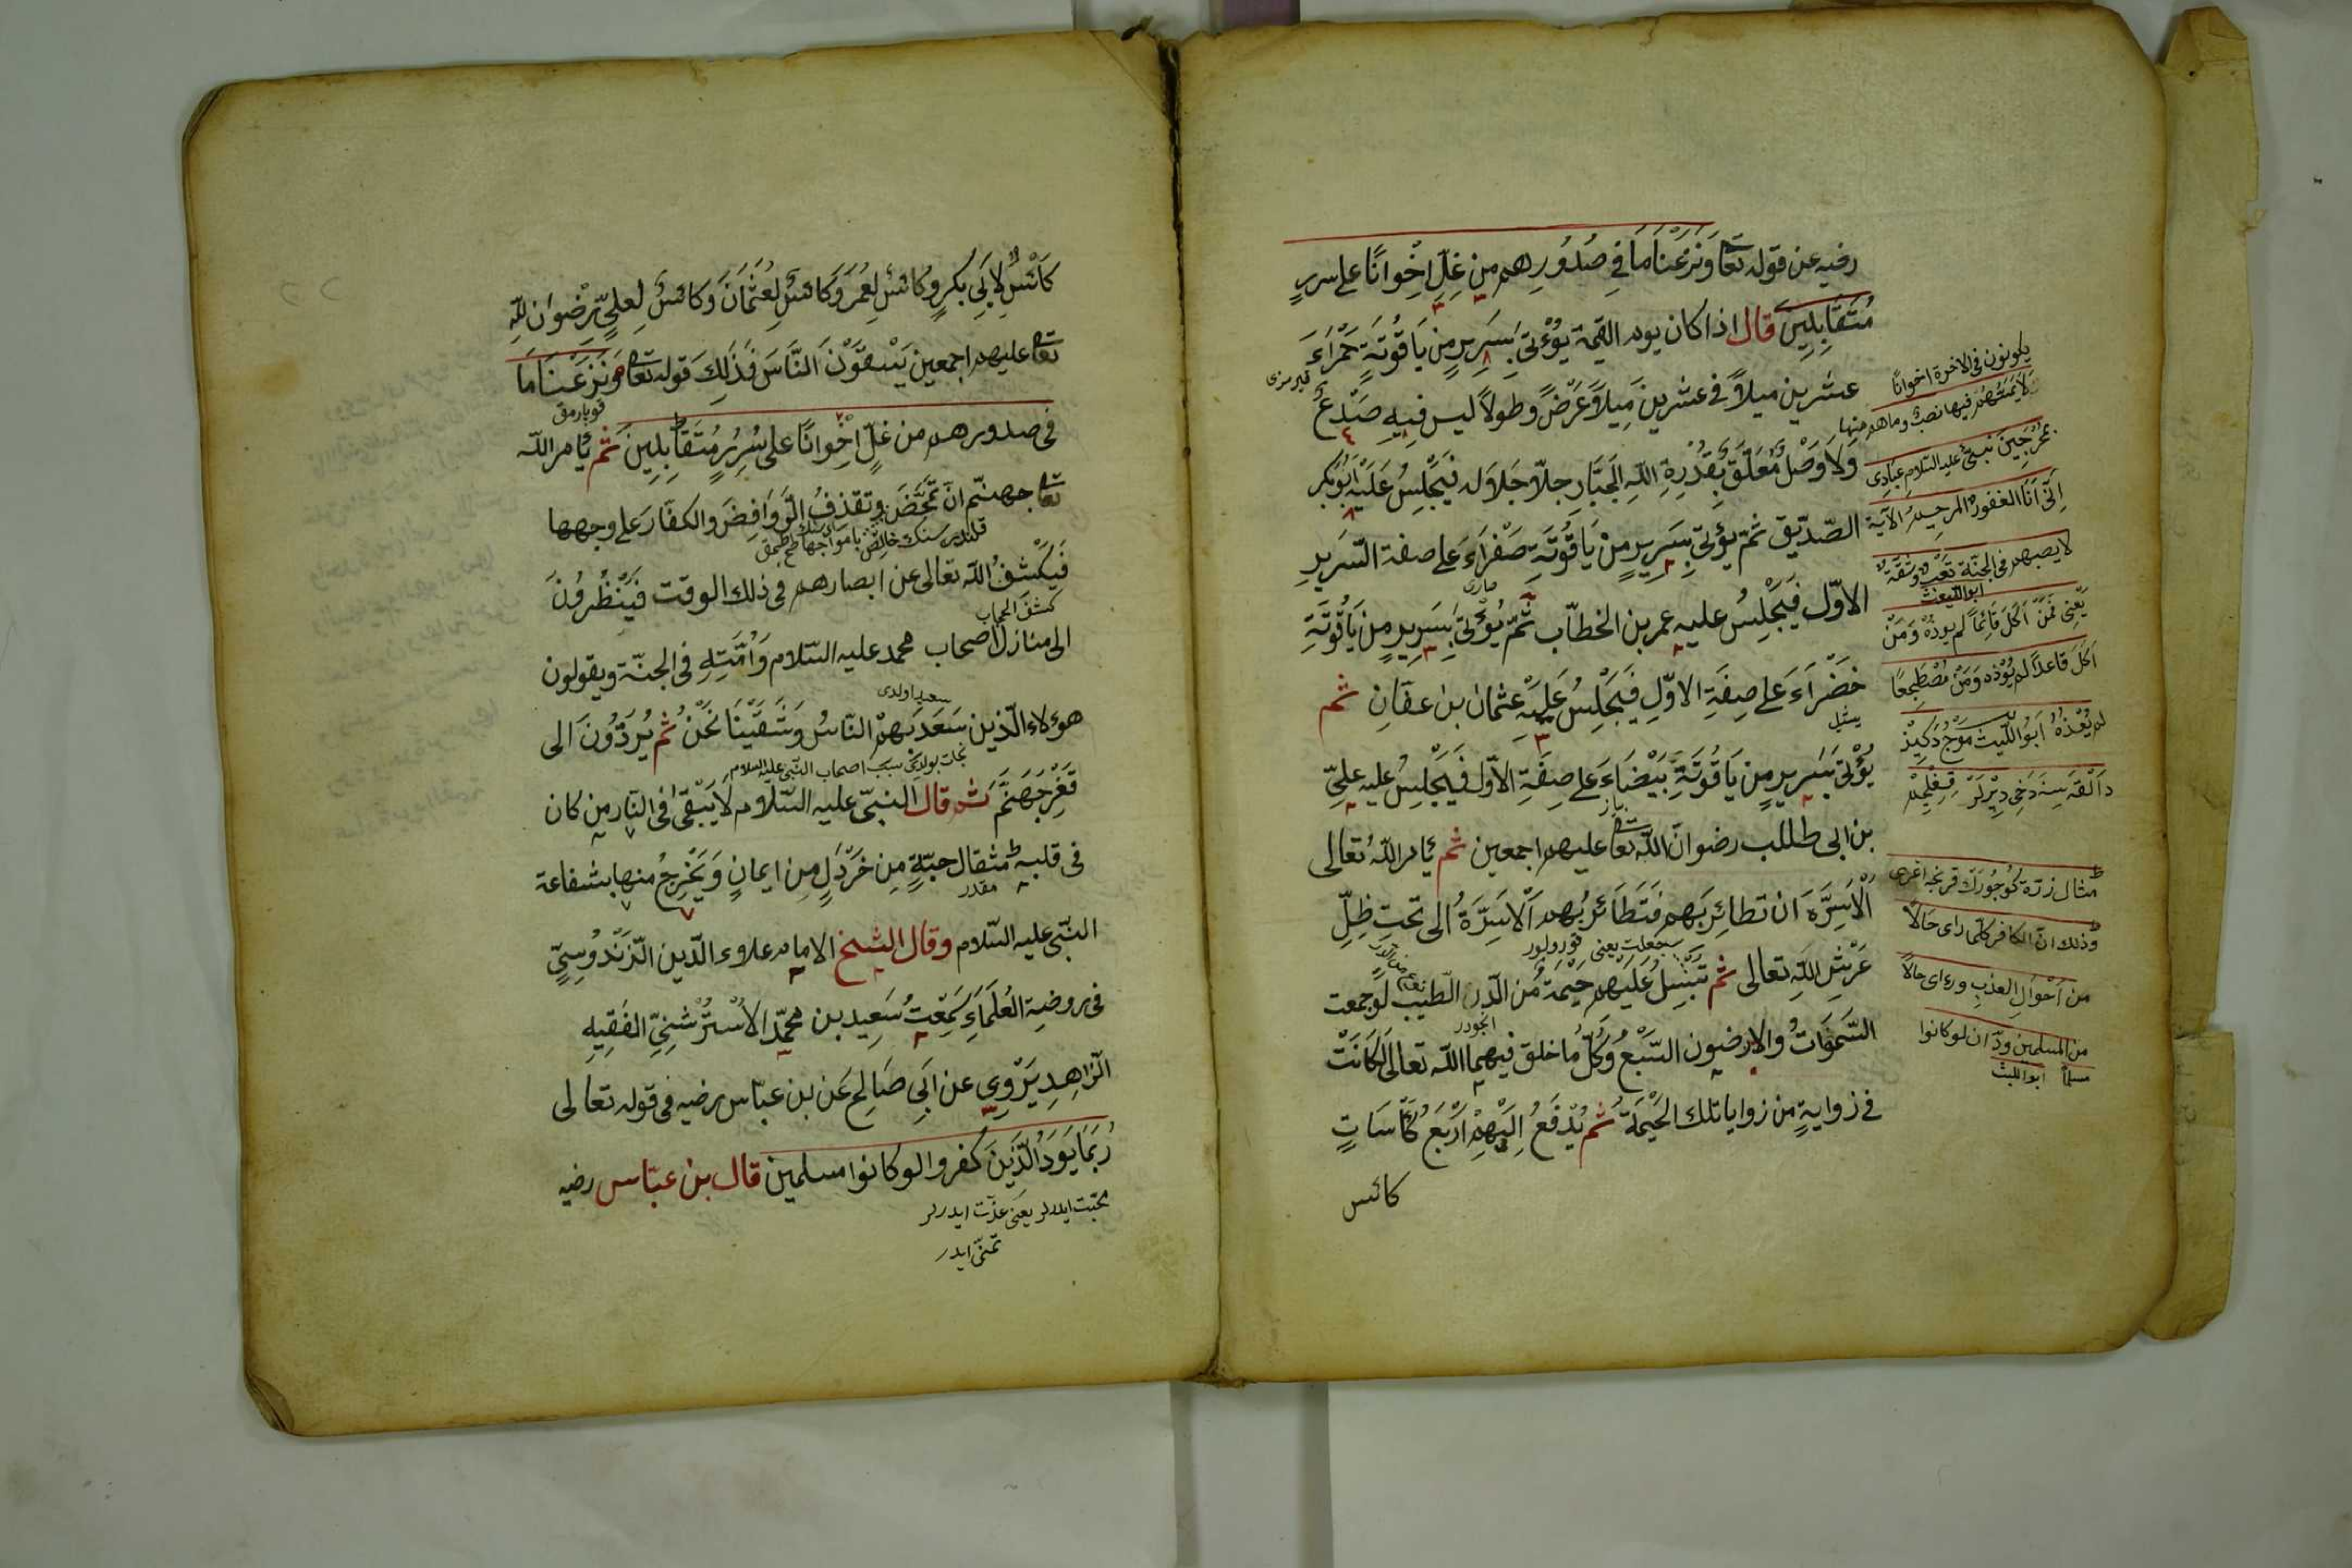 رضيه عن قوله تعا وَنَزَعْنَا مَا فِي صُدُورِهِم مِن غِلٍّ اِخْوَانًا على سررٍ
مُتَقَابِلِينَ قال اذا كان يوم القيمة يُؤْتىٰ بِسَرِيرٍ مِن يَاقُوتَةٍ حَمْرَاءَ
قيرمزى
عشرين ميلاً في عشرين مِيلاً عَرْضً وطولاً ليس فِيهِ صَدْعٌ
وَلَا وَصْلٌ مُعَلَّقٍ بِقُدْرِةِ اللّهِ الجَبَّارِ جلّا جَلاَلَه فَيَجْلِسُ عَلَيْهِ اَبُوبَكر
الصّدّيق ثمّ يؤتى بِسَرِيرٍ مِنْ يَاقُوتَةٍ صَفْرَاءَ على صفة السّرَيرِ
صارى
الاوّل فَيَجْلِسُ عليه عمر بن الخطّاب ثمّ يُؤْتىٰ بِسَرِيرٍ مِن يَاقُوتَةٍ
خَضْرَاءَ على صِفَةِ الاوّلِ فَيَجْلِسُ عَلَيْهِ عثمان بن عفّانِ ثم
يشيل
يُؤْتىٰ بِسَرِيرٍ مِن يَاقُوتَةٍ بَيْضَاءَ على صِفَةِ الاوّل فَيَجْلِسُ عليه عليّ
بياز
بن ابى طالب رضوانَ اللّه تعا عليهم اجمعين ثم يُامر اللّهُ تعالى
اْلاَسِرَّه ان تطائِرَ بَهِم فَتَطَائَر بُهِم اَلاَسَرَّةُ الى تحتِ ظِلِّ
عَرْشِ اللّهِ تعالى ثم تَسْبِلُ عَلَيهِم خَيْمَةٌ مُن الدّر الطّيب لَوجمعت
السَّمَوَاتُ والارضيون السّبْعُ وَكُلّ مُا خلق فيهما اللّه تعالى لَكَانَتْ
في زوايةٍ من زوايا تلك الخَيْمَةِ ثُم يُدْفَعُ اِلَيْهِم اَرْبَعُ كَأسَاتٍ
كائس
يكونون فى الاخرة اخوانًا
لاَيَمَسّهُم فيها نصبٌ وما هم منها
بمُخْرَجِينَ نبئ عليه السّلام عبَادِى
اِنّى اَنَا الغفورُ الرحيم الآية
لا يصبهم فى الجنّة تَعَبٌ وَشقّة
ابوالليث
يَعْنِى فَمَنْ اَكَلَ قَائِمًا لم يوذه وَمَنْ
اَكَلَ قاعدًا لم يُوذه وَمَن مُضْطَجِعًا
مثال زرّه كُوجُورَك قرنجه اغرى
وذلك انّ الكافر كلّما راى حَالاً
من اَحْوَالِ العذبِ وراى حالاً
من المسلمين ودّ ان لو كانوا
مسلمًا ابوالليث
كَائسٌ لاِبَى بَكرٍ وكائسٌ لِعُمَرَ وَكَائسٌ لِعُثْمَانَ وَكائسٌ لِعلىٍّ رِضْوان للّهِ
تعا عليهم اجمعين يَسْقَوْنَ النَّاسَ فَذَلِكَ قوله تعا وَنَزَعْنَا مَا
قوبارمق
فى صدورهم من غلٍّ اِخْوانًا على سُرِرٍ مُتَقَابِلِينَ ثم يُامر اللّه
تعا جهنّم انّ تَمَخَّضَ وتقذفُ الرَّوَافِضَ والكفّارَ على وجهها
فَيكْشفُ اللّه تعالى عن ابصارهم فى ذلك الوقت فَيَنْظُرُونَ
كشفَ الحجاب
الى منازل اصحاب محمد عليه السّلام وَاُمَّتِهِ فى الجنّة ويقولون
سعيد اولدى
هؤلاء الّذين سَعَدَ بَهِمْ النّاسُ وَشَقَيْنَا نَحْنُ ثُم يُرَدُّونَ الى
نجات بولدى سبب اصحاب النّبى عليه السلام
قَعْرِ جَهَنَّمَ ثم قال النبىّ عليه السّلاَم لاَ يَبْقىٰ فى النّار من كان
فى قلبه مثقال حبّةٍ مِن خَرْدَلٍ مِن ايمانٍ وَيَخْرِجُ منها بشفاعة
مقدر
النّبّى عليه السّلام وقال الشيخ الامام علاء الدّين الزَّنْدُوسِتِىّ
فى روضة العُلَمَاءِ سَمِعْتُ سَعِيد بن محمّد الاُسْتُرْشَنِىّ الفَقِيهِ
الزاهدِ يَرْوِى عن اَبِى صَالِح عَن بن عبّاس رضيه فى قوله تعالى
رُبَمَا يَوَدُ الّذينَ كفروا لو كانوا مسلمين قال بن عبّاس رضيه
محبّت ايدلر يعنى عزّت ايدرلر
تمنّى ايدر